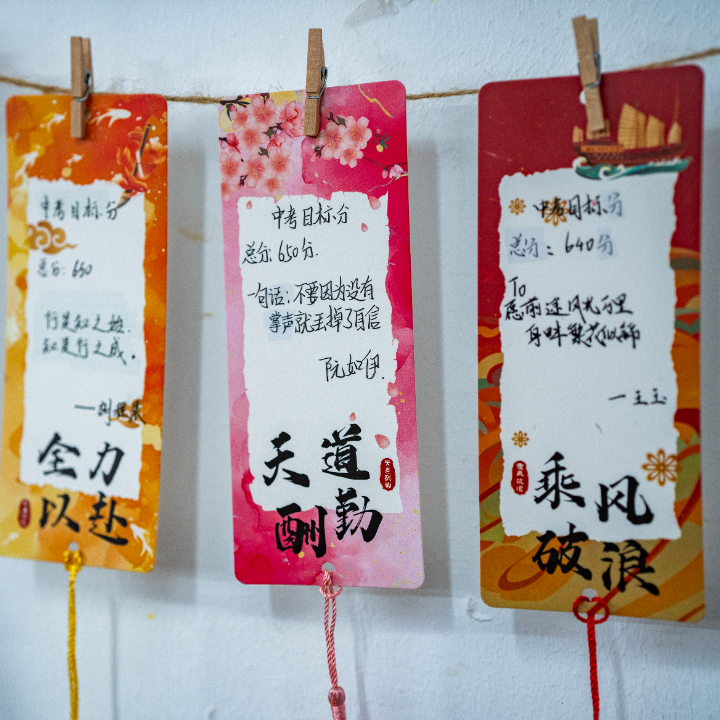 中考目标分
总分: 650
行是知之始.
知是行之成。
全力
以赴
中考目标分
总分: 650分.
一句话: 不要因为没有
掌声就丢掉了自信
阮如伊.
天道
酬勤
中考目标分
总分: 640分
To
愿前途风光万里
身畔繁花似锦
乘风
破浪